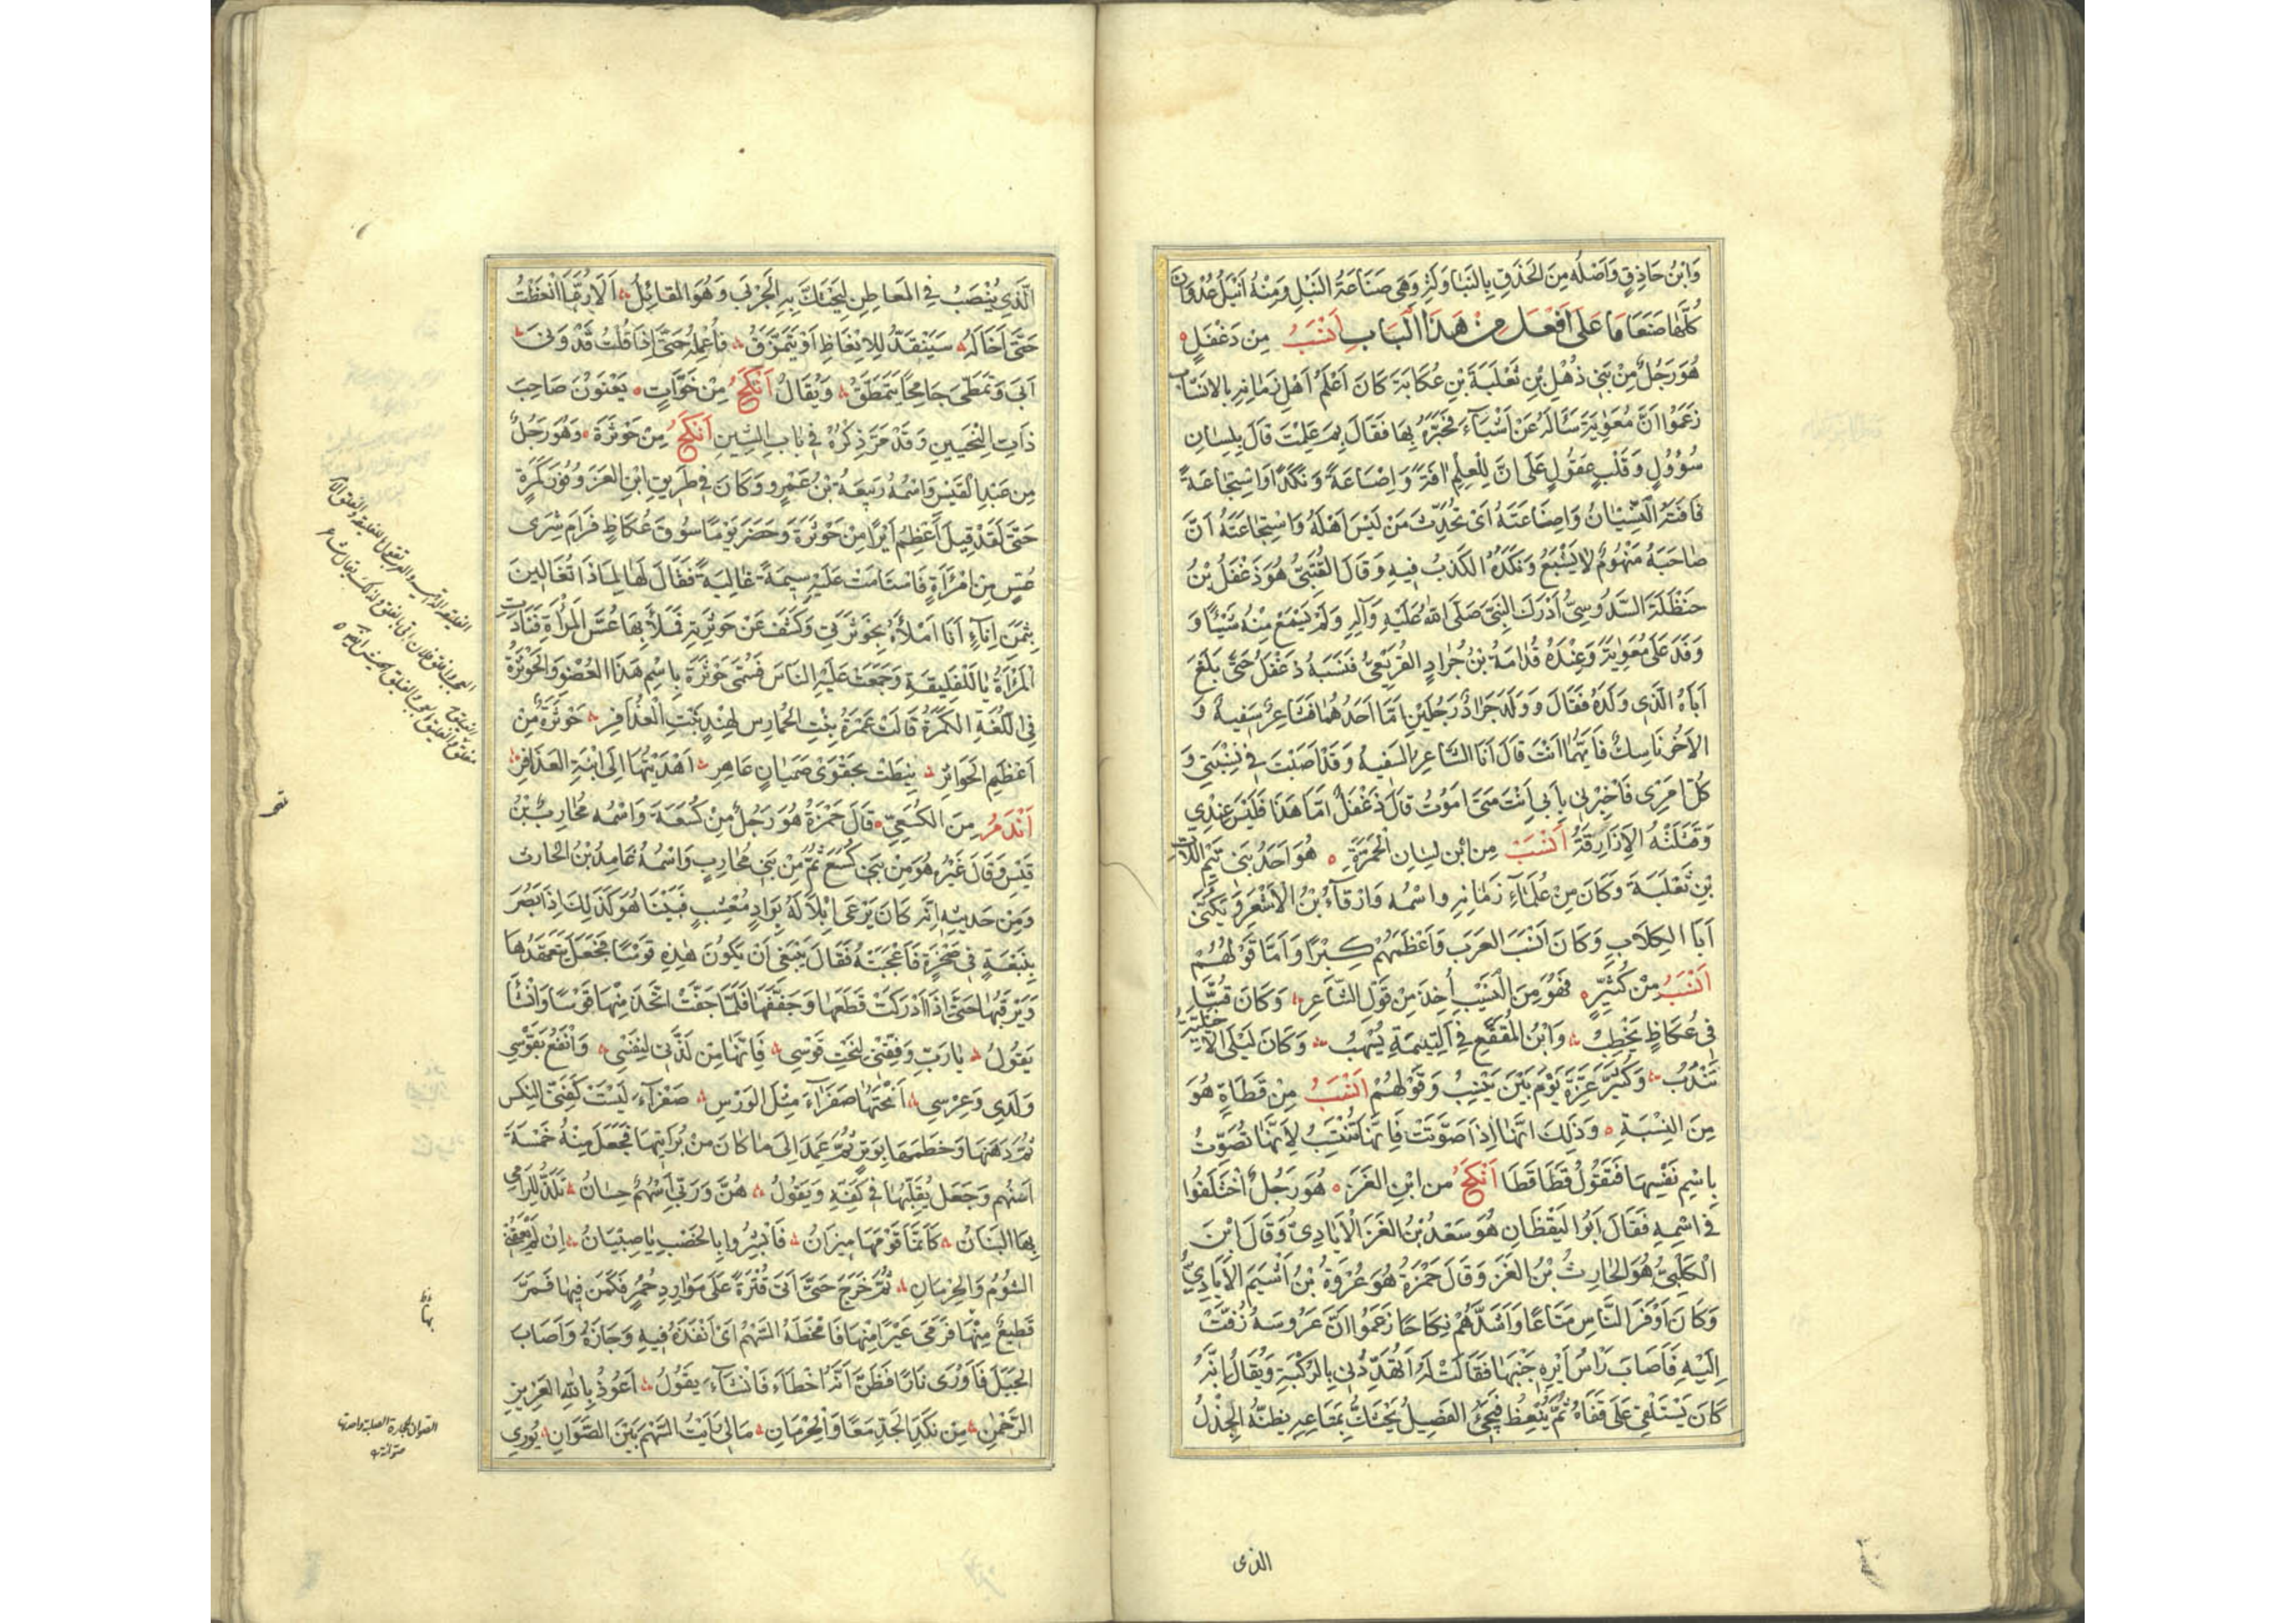 وَابْنُ حَاذِقٍ وَاَصْلُه مِنَ الحَذَقِ بِالنَبَاوَكَثُر وَهِىَ صَنَاعَةُ النَبْلِ وَمِنْهُ اَنْبَلُ عُدْوَانَ
كُلُّهَا صَنَعَا مَا عَلى اَفْعَل مِنْ هَذَا الْبَابِ اَنْسَبُ مِن دَغْفَلٍ
هُوَ رَجُلٌ مِنْ بَنِى ذُهْلِ بْنِ ثَعْلَبَةَ بْنِ عُكَابَةَ كَانَ اَعْلَمَ اَهْلِ زَمَانِهِ بِالاَنسَابِ
زَعَمُوا اَنَّ مُعَوِيَةَ سَاَلَهُ عَنْ اَشْيَآءَ فَخَبَّرَهُ بِهَا فَقَالَ بِمَ عَلِمْتَ قَالَ بِلِسَانٍ
سُؤُولٍ وَ قَلْبٍ عَقُولٍ عَلَى اَنَّ لِلْعِلْمِ اٰفَةً وَ اِضَاعَةً وَ نَكَدًا وَاسْتِجَاعَةً
فَاٰفَتُهُ النِّسْيَانُ وَاِضَاعَتُهُ اَنْ تُحَدِّثَ مَنْ لَيْسَ اَهْلَهُ وَاسْتِجَاعَتُهُ اَنَّ
صَاحِبَهُ مَنْهُومٌ لَا يَشْبَعُ وَنَكَدُهُ الكَذبُ فِيهِ وَ قَالَ القُتَبِىُّ هُوَ دَغْفَلُ بْنُ
حَنْظَلَةَ السَّدُوسِىُّ اَدْرَكَ النَبِىَّ صَلَّى اللهُ عَلَيْهِ وَآلِهِ وَلَمْ يَسْمَعْ مِنْهُ شَيْئًا وَ
وَفَدَ عَلَى مُعَوِيَةَ وَعِنْدَهُ قُدَامَةُ بْنُ جَرَادٍ القُرَيْعِىُّ فَنَسَبَهُ دَغْفَلُ حَتَّى بَلَغَ
اَبَاهُ الَّذِى وَلَدَهُ فَقَالَ وَ وَلَدَ جَرَادٌ رَجُلَيْنِ اَمَّا اَحَدُهُمَا فَشَاعِرٌ سَفِيهٌ وَ
الآخَرُ نَاسِكٌ فَاَيُّهُمَا اَنْتَ قَالَ اَنَا الشَّاعِرُ السَفِيهُ وَ قَدْ اَصَبْتَ فِى نِسْبَتِى وَ
كُلِّ اَمْرِى فَاَخْبِرْنِى بِاَبِى اَنْتَ مَتَى اَمُوتُ قَالَ دَغْفَلٌ اَمَّا هَذَا فَلَيْسَ عِنْدِى
وَ قَتَلَتْهُ الاَزَارِقَةُ اَنْسَبُ مِن ابْنِ لِسَانِ الْحُمَّرَةِ هُوَ اَحَدُ بَنِى تَيْمِ اللَّاتِ
بْنِ ثَعْلَبَةَ وَكَانَ مِنْ عُلَمَآءِ زَمَانِهِ واسْمُه وَرْقَآءُ بْنُ الاَشْعَرِ وَ يُكَنَّى
اَبَا الكِلَابِ وَ كَانَ اَنْسَبَ العَرَبِ وَاَعْظَمَهُمْ كِبْرًا وَ اَمَّا قَوْلُهُمْ
اَنْسَبُ مِنْ كُثَيِّرٍ فَهُوَ مِنَ النَسِيْبِ اُخِذَ مِنْ قَوْلِ الشَّاعِرِ وَكَانَ قُسًّا
فِى عُكَاظٍ يَخْطبُ وَابْنُ المُقَفَّعِ فِى اليَتِيمَةِ يُسْهِبُ وَ كَانَ لَيْلَى الاَخْيَلِيَّةَ
تَنْدُبُ وَكُثَيِّرُ عَزَّةَ يَوْمَ بَيْنٍ يَنْسِبُ وَ قَوْلُهُمْ اَنْسَبُ مِنْ قَطَاةٍ هُوَ
مِنَ النِسْبَةِ وَ ذَلِكَ اَنَّهَا اِذَا صَوَّتَتْ فَاِنَّهَا تَنْتَسِبُ لِاَنَّهَا تُصَوِّتُ
بِاسْمِ نَفْسِهَا فَتَقُولُ قَطَا قَطَا اَنْكَحُ مِن ابْنِ الغَزِ هُوَ رَجُلٌ اخْتَلَفُوا
فِى اسْمِهِ فَقَالَ اَبُو اليَقْظَانِ هُوَ سَعْدُ بْنُ الغَزِ الْاَيَادِىُّ وَ قَالَ ابْنُ
الْكَلْبِىِّ هُوَ الحَارِثُ بْنُ الغَزِ وَ قَالَ حَمْزَةُ هُوَ عُرْوَةُ بْنُ اَشْيَمَ الاَيَادِىُّ
وَ كَانَ اَوْفَرَ النَّاسِ مَتَاعًا وَ اَشَدَّهُمْ نِكَاحًا زَعَمُوا اَنَّ عَرُوسَهُ زُفَّتْ
اِلَيْهِ فَاَصَابَ رَاْسُ اَيْرِهِ جَنْبَهَا فَقَالَتْ لَهُ اَتُهَدِّدُنِى بِالرُكْبَةِ وَيُقَالُ اِنَّهُ
كَانَ يَسْتَلْقِى عَلَى قَفَاهُ ثُمَّ يُنْعِظُ فَيَجِىْءُ الفَصِيلُ يَحْتَكُّ بِمَتَاعِهِ يظنُّهُ الْجِذْلَ
الذى
الَّذِى يُنْصَبُ فِى المَعَاطِنِ لِيَحْتَكَّ بِهِ الْجَرْبَى وَ هُوَ القَائِلُ اَلَا رُبَّمَا انْعَظْتُ
حَتَّى اَخَالَهُ سَيَنْقَدُّ لِلاِنْعَاظِ اَوْ يَتَمَزَّقُ فَاُعْمِلُهُ حَتَّى اِذَا قُلْتُ قَدْ وَنَى
اَبَى وَتَمَطَّى جَامِحًا يَتَمَطَّقُ وَ يُقَالُ اَنْكَحُ مِنْ خَوَّاتٍ يَعْنُونَ صَاحِبَ
ذَاتِ النِحْيَيْنِ وَ قَدْ مَرَّ ذِكْرُهُ فِى بَابِ الشِينِ اَنْكَحُ مِنْ حَوْثَرَةَ وَ هُوَ رَجُلٌ
مِن عَبْدِ القَيْسِ وَاسْمُهُ رَبِيعَةُ بْنُ عَمْرٍو وَ كَانَ فِى طَرِيقِ ابْنِ الغَزِ وَ فُوْرِ كَمَرَةٍ
حَتَّى لَقَدْ قِيلَ اَعْظَمُ اَيْرًا مِنْ حَوْثَرَةَ وَ حَضَرَ يَوْمًا سُوقَ عُكَاظٍ فَرَامَ شِرَى
عُسٍّ مِنِ امْرَاَةٍ فَاسْتَامَتْ عَلَيْهِ سِيمَةً غَالِيَةً فَقَالَ لَهَا لِمَاذَا تُغَالِينَ
بِثَمَنِ اِنَآءٍ اَنَا اَمْلَاُهُ بِحَوْثَرَتِى وَكَشَفَ عَنْ حَوْثَرَتِهِ فَمَلَأَ بِهَا عُسَّ المَرْاَةِ فَنَادَتِ
المَرْاَةُ يَا لَلْفَلِيقَةِ وَجَمَعَتْ عَلَيْهِ النَاسَ فَسُمِّى حَوْثَرَةَ بِاسْمِ هَذَا العُضْوِ وَالْحَوْثَرَةُ
فِى اللُّغَةِ الكَمَرَةُ قَالَتْ عَمْرَةُ بِنْتُ الحُمَارِسِ لِهِنْدٍ بِنْتِ الْعُذَافِرِ حَوْثَرَةٌ مِنْ
اَعْظَمِ الحَوَاثِرِ نِيطَتْ بِحَقْوَىْ صَمَيَانٍ عَاهِرِ اَهْدَيْتُهَا اِلَى ابْنَةِ العُذَافِرِ
اَنْدَمُ مِنَ الكُسَعِىِّ قَالَ حَمْزَةُ هُوَ رَجُلٌ مِنْ كُسَعَةَ وَاسْمُه مُحَارِبُ بْنُ
قَيْسٍ وَ قَالَ غَيْرُه هُوَ مِنْ بَنِى كُسَعَ ثُمَّ مِنْ بَنِى مُحَارِبٍ وَاسْمُهُ غَامِدُ بْنُ الحَارِث
وَ مِنْ حَدِيثِهِ اَنَّهُ كَانَ يَرْعَى اِبِلًا لَهُ بِوَادٍ مُعْشِبٍ فَبَيْنَا هُوَ كَذَلِكَ اِذْ اَبْصَرَ
بِنَبْعَةٍ فِى صَخْرَةٍ فَاَعْجَبَتْهُ فَقَالَ يَنْبَغِى اَنْ يَكُونَ هٰذِهِ قَوْسًا فَجَعَلَ يَتَعَهَّدُهَا
وَيَرْقُبُهَا حَتَّى اِذَا اَدْرَكَتْ قَطَعَهَا وَ جَفَّفَهَا فَلَمَّا جَفَّتْ اتَّخَذَ مِنْهَا قَوْسًا وَ اَنْشَاَ
يَقُولُ يَا رَبِّ وَفِّقْنِى لِنَحْتِ قَوْسِى فَاِنَّهَا مِنْ لَذَّتِى لِنَفْسِى وَ انْفَعْ بِقَوْسِى
وَلَدِى وَ عِرْسِى اَنْحَتُهَا صَفْرَآءَ مِثْلَ الوَرْسِ صَفْرَآءَ لَيْسَتْ كَقِسِىِّ النِكْسِ
ثُمَّ دَهَنَهَا وَ خَطَمَهَا بِوَتَرٍ ثُمَّ عَمَدَ اِلَى مَا كَانَ مِنْ بُرَايَتِهَا فَجَعَلَ مِنْهُ خَمْسَةَ
اَسْهُمٍ وَجَعَلَ يُقَلِّبُهَا فِى كَفِّهِ وَ يَقُولُ هُنَّ وَ رَبِّى اَسْهُمٌ حِسَانُ تَلَذُّ لِلرَّامِى
بِهَا البَنَانُ كَاَنَّمَا قَوَّمَهَا مِيزَانُ فَابْشِرُوا بِالخَصْبِ يَا صِبْيَانُ اِنْ لَمْ يَعُقْنِى
الشُؤْمُ وَالحِرْمَانِ ثُمَّ خَرَجَ حَتَّى اَتَى قُتْرَةً عَلَى مَوَارِدِ حُمُرٍ فَكَمَنَ فِيهَا فَمَرَّ
قَطِيعٌ مِنْهَا فَرَمَى عَيْرًا مِنْهَا فَاَمْخَطَهُ السَّهْمُ اَىْ اَنْفَذَهُ فِيهِ وَ جَازَهُ وَ اَصَابَ
الجَبَلَ فَاَوْرَى نَارًا فَظَنَّ اَنَّهُ اَخْطَاَهُ فَانْشَآءَ يَقُولُ اَعُوذُ بِاللهِ العَزِيزِ
الرَّحْمٰنِ مِنْ نَكَدِ الجَدِّ مَعًا وَ الْحِرْمَانِ مَا لِى رَاَيْتُ السَّهْمَ بَيْنَ الصَّوَّانِ يُورِى
الصوان حجارة الصلبة واحدتها
صوانة